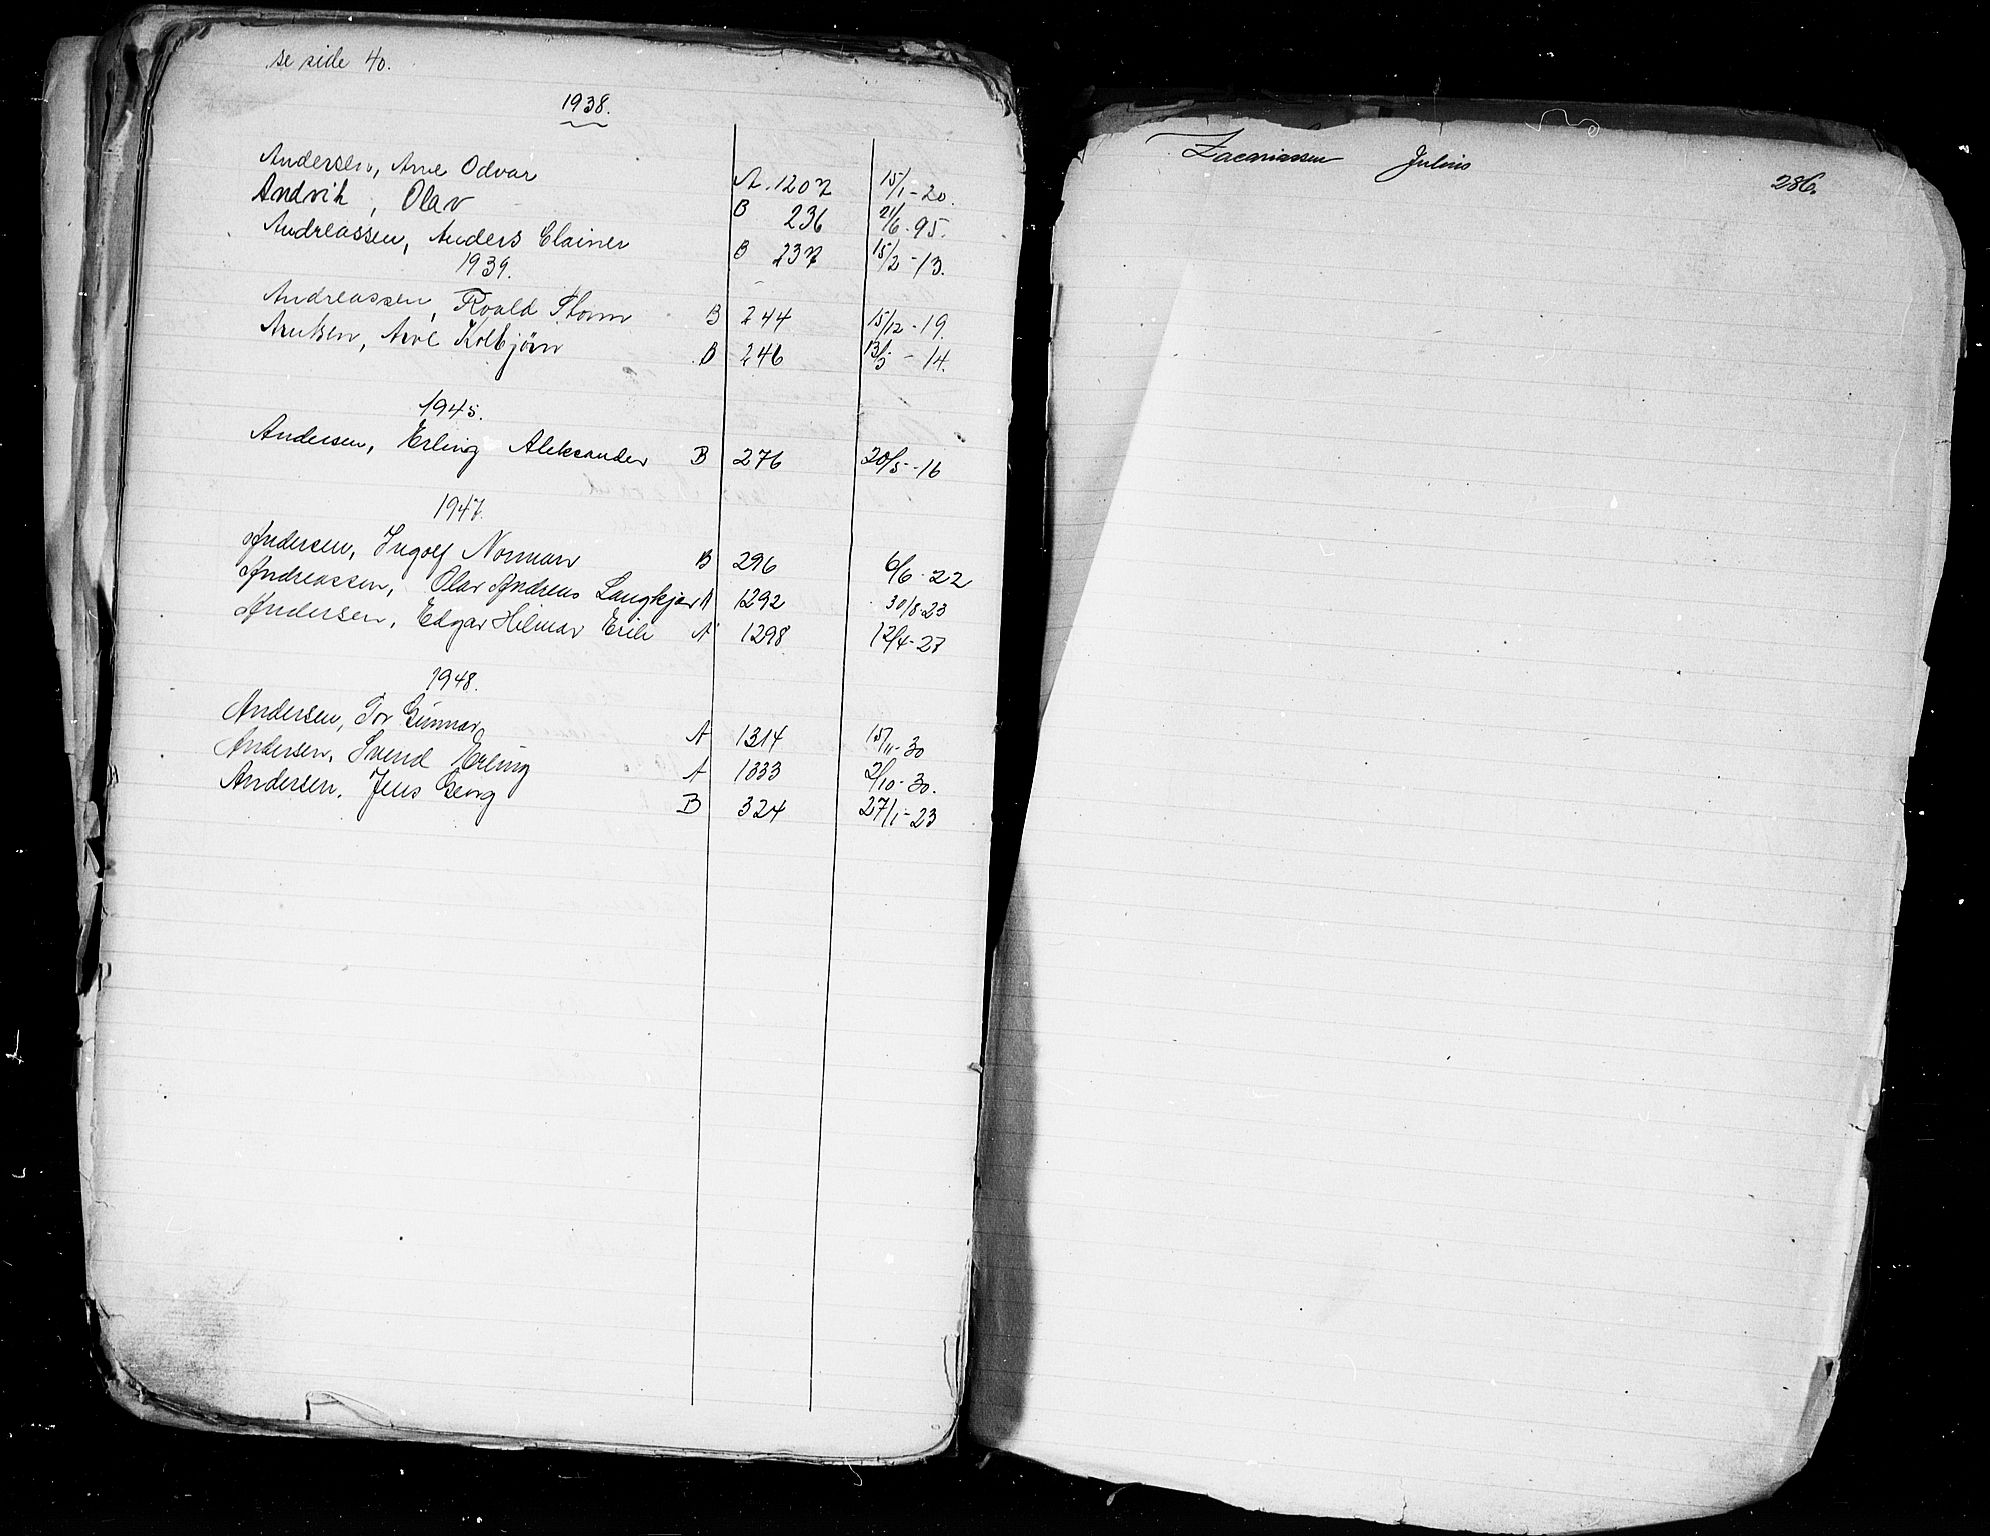 se side 40.
1938.
Andersen, Arve Odvar A. 1207 15/1-20.
Andvik, Olav B 236 21/6-95.
Andreassen, Anders Clainer B 237 15/2-13.
1939.
Andreassen, Roald Thorm B 244 15/12-19.
Arntsen, Arve Kolbjørn B 246 13/5-14.
1945.
Andersen, Erling Aleksander B 276 20/5-16
1947.
Andersen, Ingolf Norman B 296 6/6-22
Andreassen, Olav Andreas Langkjær A 1292 30/8-23
Andersen, Edgar Hilmar Erik A 1298 12/4-27
1948.
Andersen, Tor Gunnar A 1314 15/11-30
Andersen, Svend Erling A 1333 2/10-30.
Andersen, Jens Georg B 324 27/1-23
Zacariassen Julius 286.